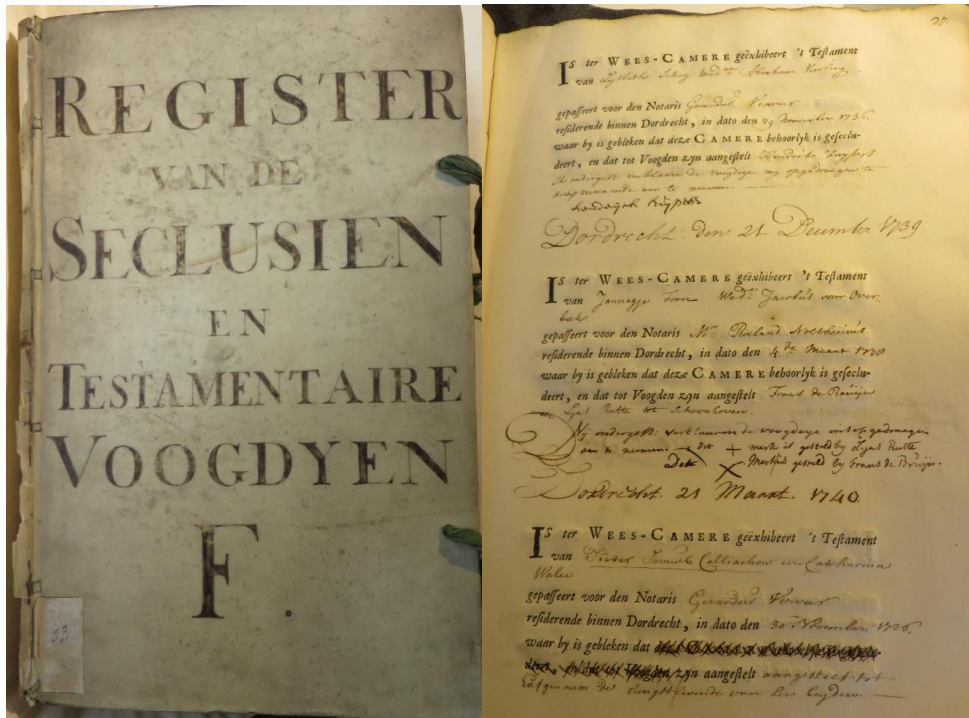 REGISTER
VAN DE
SECLUSIEN
EN
TESTAMENTAIRE
VOOGDYEN
F.
33
27.
IS ter WEES-CAMERE geëxhibeert 't Testament
van Wed.
gepasseert voor den Notaris Gerardus Verveer
residerende binnen Dordrecht, in dato den 29 November 1736.
waar by is gebleken dat deze CAMERE behoorlyk is geseclu-
deert, en dat tot Voogden zyn aangestelt Hendrik
de voogdye my opgedragen te
aan te nemen.
Dordrecht den 21 December 1739
IS ter WEES-CAMERE geëxhibeert 't Testament
van Jannegje Wed.e Jacobus van Over-
beek
gepasseert voor den Notaris Mr. Roeland Noltheniüs
residerende binnen Dordrecht, in dato den 4de Maart 1730
waar by is gebleken dat deze CAMERE behoorlyk is geseclu-
deert, en dat tot Voogden zyn aangestelt Frans de Brüijn
en Rutte tot Schoonhoven.
Wij ondergesz: verklaaren de voogdeye ons opgedraagen
aan te neemen. dit + merk is gestelt by Rutte
Dit X Merk is gestelt by Frans de Brüijn.
Dordrecht. 21 Maart. 1740.
IS ter WEES-CAMERE geëxhibeert 't Testament
van Pieter Samuel Calliachon en Catharina
Walee
gepasseert voor den Notaris Gerardus Verveer
residerende binnen Dordrecht, in dato den 30 November 1726.
waar by is gebleken dat
zyn aangestelt aangestelt tot
de langstleevende van hen beyden.